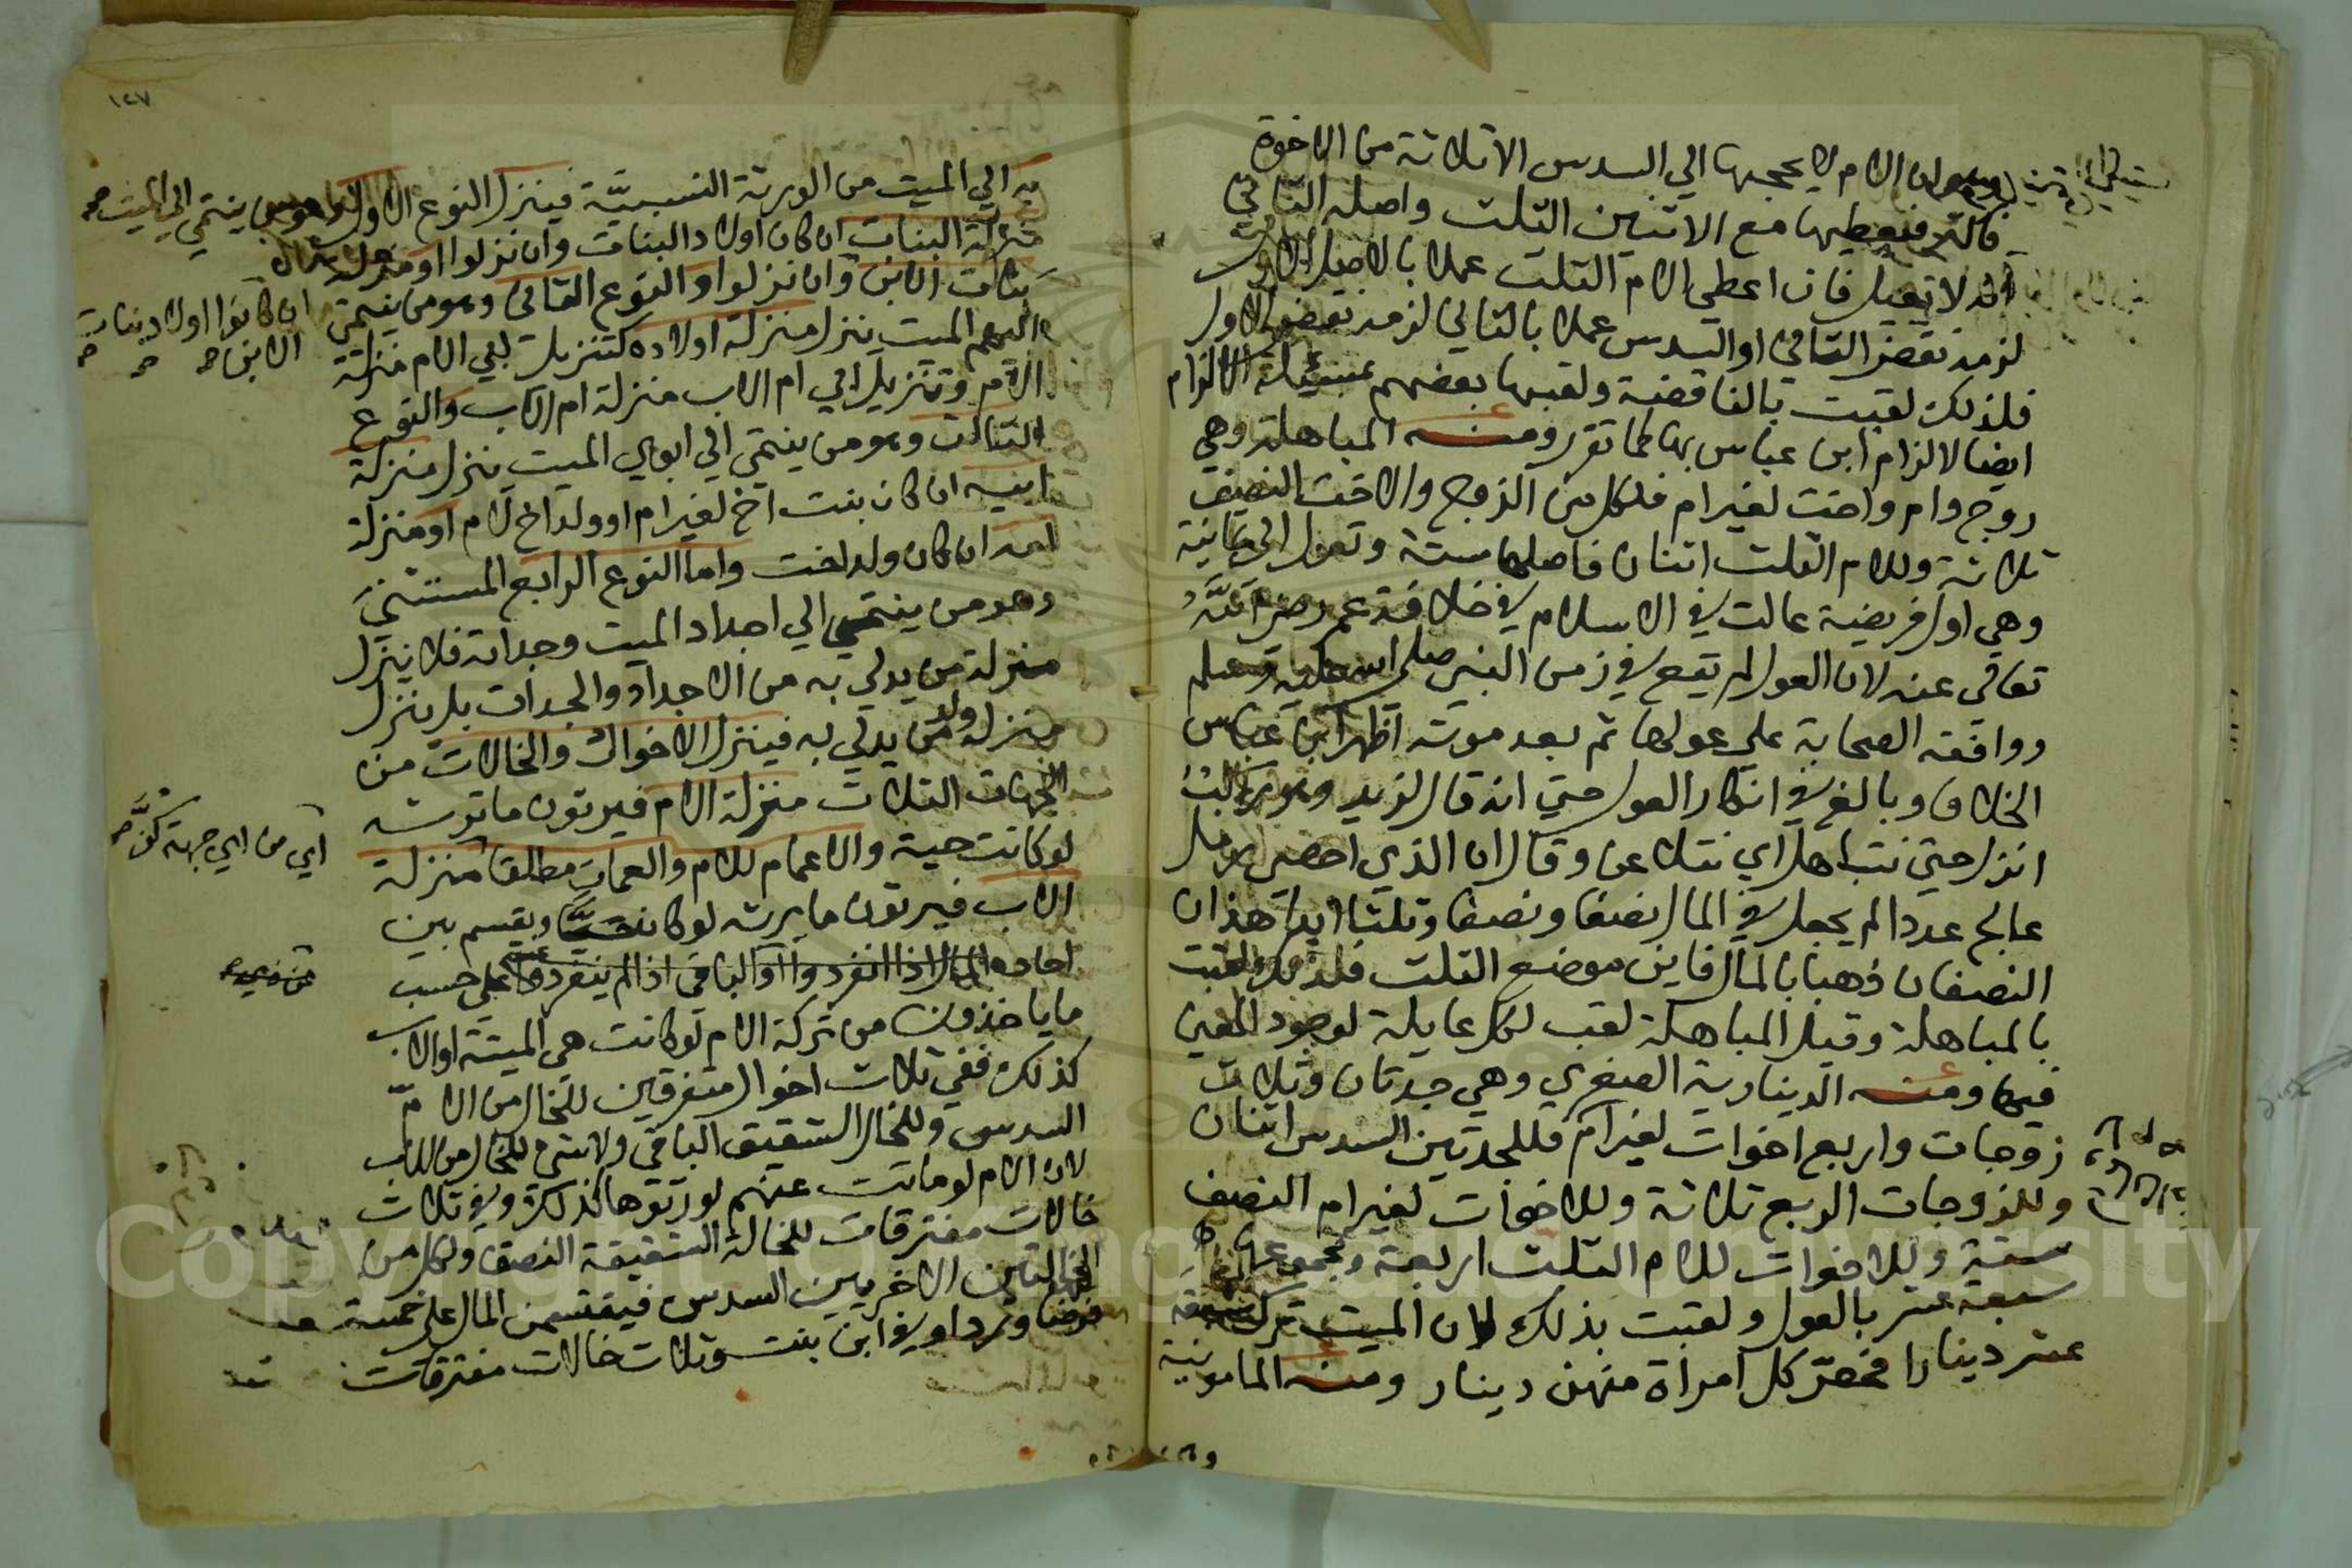 وهو ان الام لا يحجبها الي السدس الا ثلاثة من الاخوة
فاكثر فيعطيها مع الاثنين الثلث واصله الثاني
انه لا يعيل فان اعطي الام الثلث عملا بالاصل الاول
لزمه نقض الثاني او السدس عملا بالثاني لزمه نقض الاول
فلذلك لقبت بالناقضة ولقبها بعضهم الالزام
ايضا لالزام ابن عباس بها لما تقرر ومنه المباهلة وهي
زوج وام واخت لغير ام فلكل من الزوج والاخت النصف
ثلاثة وللام الثلث اثنان فاصلها ستة وتعول الي ثمانية
وهي اول فريضة عالت في الاسلام في خلافة عمر رضي الله
تعالى عنه لان العول لم يقع في زمن النبي صلى الله عليه وسلم
ووافقه الصحابة علي عولها ثم بعد موته اظهر ابن عباس
الخلاف وبالغ في انكار العول حتي انه قال لزيد وهو راكب
انزل حتي نتباهل اي نتلاعن وقال ان الذي احصي رمل
عالج عددا لم يجعل في المال نصفا ونصفا وثلثا ابدا هذان
النصفان ذهبا بالمال فاين موضع الثلث فلذلك لقبت
بالمباهلة وقيل المباهلة لقب لكل عايلة لوجود المعني
فيها ومنه الدينارية الصغري وهي جدتان وثلاث
زوجات واربع اخوات لغير ام فللجدتين السدس اثنان
وللزوجات الربع ثلاثة وللاخوات لغير ام النصف
ستة وللاخوات للام الثلث اربعة ومجموعها
سبعة عشر بالعول ولقبت بذلك لان الميت ترك سبعة
عشر دينارا فخص كل امراة منهن دينار ومنه المامونية
١٢٧
به الي الميت من الورثة النسبية فينزل النوع الاول وهو من ينتمي الي الميت
منزلة البنات ان كان اولاد البنات وان نزلوا او منزلة
بنات الابن وان نزلوا والنوع الثاني وهو من ينتمي
اليهم الميت ينزل منزلة اولاده كتنزيل ابي الام منزلة
الام وتنزيل ابي ام الاب منزلة ام الاب والنوع
الثالث وهو من ينتمي الي ابوي الميت ينزل منزلة
ابيه ان كان بنت اخ لغير ام او ولد اخ لام او منزلة
امه ان كان ولد اخت واما النوع الرابع المستثني
وهو من ينتمي الي اجداد الميت وجداته فلا ينزل
منزلة من يدلي به من الاجداد والجدات بل ينزل
منزلة ولد من يدلي به فينزل الاخوال والخالات من
الجهات الثلاث منزلة الام فيرثون ما ترثه
لو كانت حية والاعمام للام والعمات مطلقا منزلة
الاب فيرثون ما يرثه لو كان حيا ويقسم بين
احاده المال اذا انفردوا او الباقي اذا لم ينفردوا علي حسب
ما ياخذون من تركة الام لو كانت هي الميتة او الاب
كذلك ففي ثلاث اخوال متفرقين للخال من الام
السدس وللخال الشقيق الباقي ولا شي للخال من الاب
لان الام لو ماتت عنهم لورثوها كذلك وفي ثلاث
خالات مفترقات للخالة الشقيقة النصف ولكل من
الخالتين الاخريين السدس فيقتسمن المال علي خمسة
فرضا وردا وفي ابن بنت وثلاث خالات مفترقات
ان كانوا اولاد بنات
الابن
اي من اي جهة كن